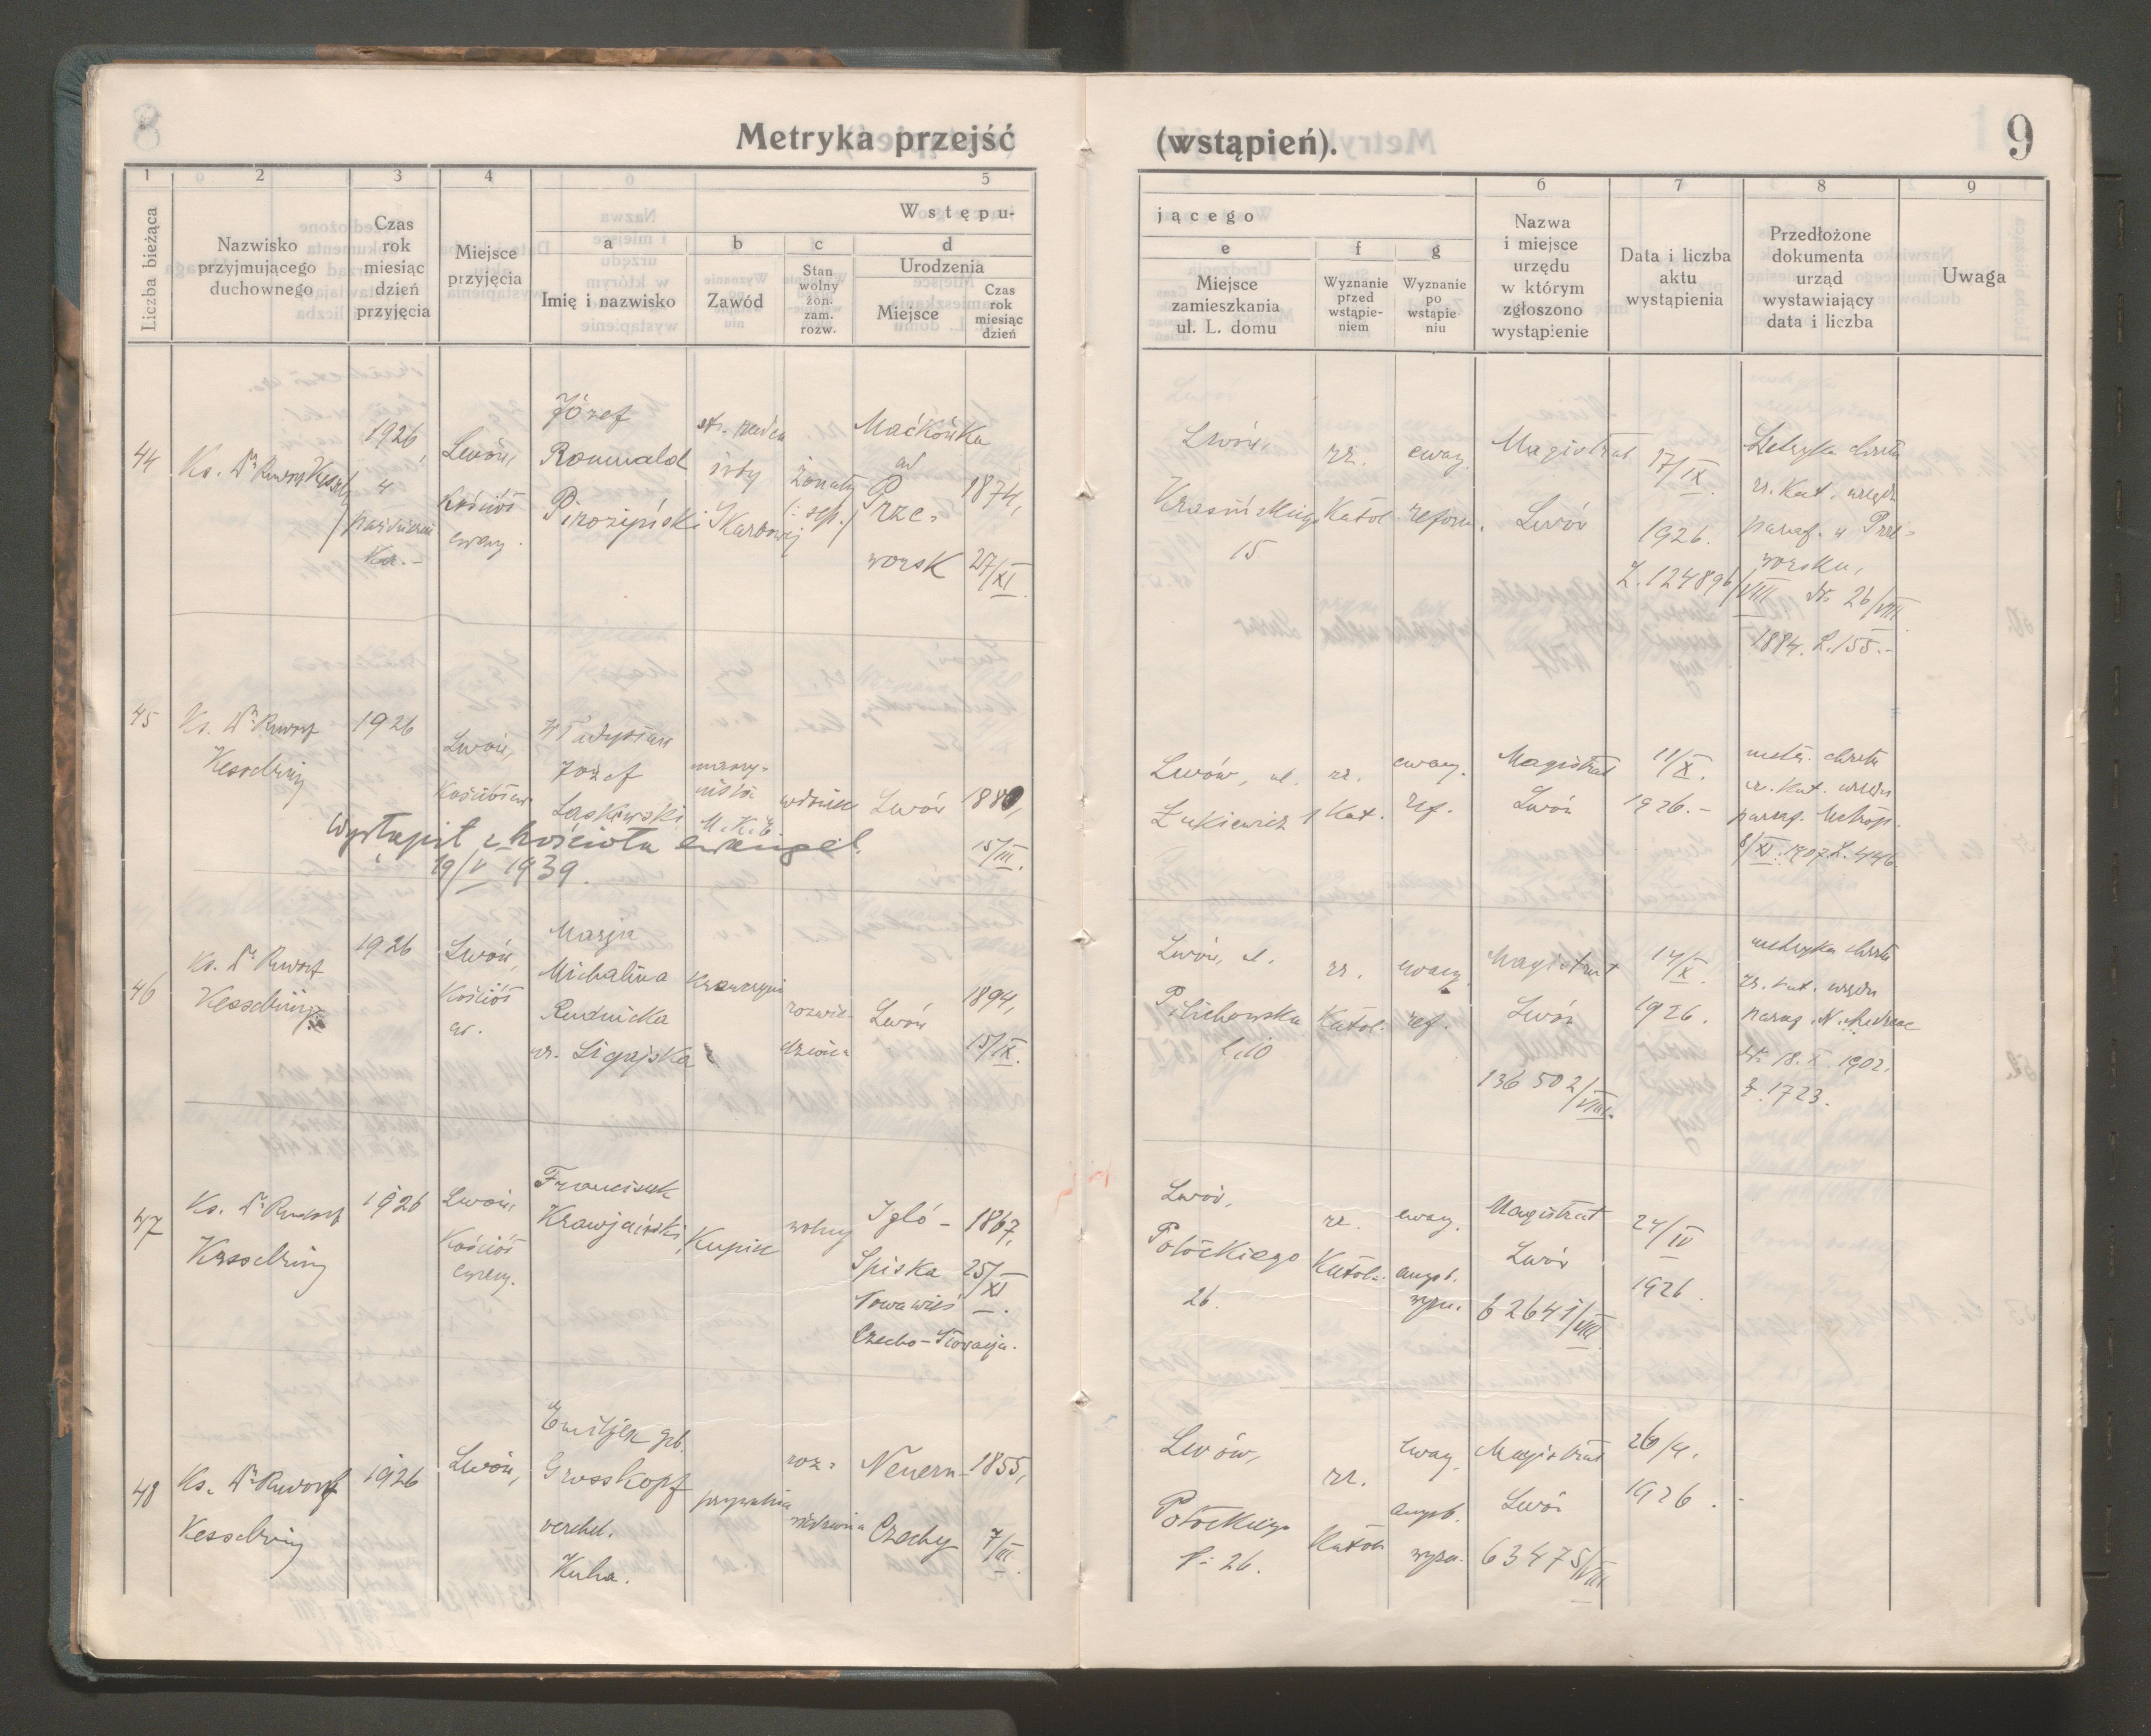 Metryka przejść (wstąpień). 9
1 2 3 4 5
Liczba bieżąca
Nazwisko
przyjmującego
duchownego
Czas
rok
miesiąc
dzień
przyjęcia
Miejsce
przyjęcia
Wstępu-
a b c d
Imię i nazwisko
Zawód
Stan
wolny
żon.
zam.
rozw.
Urodzenia
Miejsce
Czas
rok
miesiąc
dzień
6 7 8 9
jącego
e f g
Miejsce
zamieszkania
ul. L. domu
Wyznanie
przed
wstąpie-
niem
Wyznanie
po
wstąpie
niu
Nazwa
i miejsce
urzędu
w którym
zgłoszono
wystąpienie
Data i liczba
aktu
wystąpienia
Przedłożone
dokumenta
urząd
wystawiający
data i liczba
Uwaga
44
Ks. Dr
1926,
4
Lwów,
Kościół
ewang.
Józef
Romuald
Skarbowej
żonaty
/: sep./
Maćkówka
ad
Prze-
worsk
1874,
27/XI.
Lwów,
Krasickiego
15
rz.
Katol.
ewang.
reform.
Magistrat
Lwów
17/IX.
1926.
L. 124896/VIII
Metryka chrztu
rz. Kat. urzędu
paraf. w Prze-
worsku,
26/VIII.
1884. L. 155.-
45
Ks. Dr Rudolf
Kesselring
1926
Lwów,
Władysław
Józef
Laskowski
M. K. E.
Lwów
15/III.
Wystąpił z kościoła ewangel.
19/V 1939.
Lwów, ul.
1
rz.
Kat.
ewang.
ref.
Magistrat
Lwów
11/X.
1926.-
metr. chrztu
rz. Kat. urzędu
paraf. Metrop.
8/XI. 1907 L. 446
46
Ks. Dr Rudolf
Kesselring
1926
Lwów,
Kościół
ew.
Marja
Michalina
Rudnicka
Krawczyni
rozwie-
dziona
Lwów
1894,
15/IX.
Lwów, ul.
Pilichowska
l. 10
rz.
Katol.
ewang.
ref.
Magistrat
Lwów
136 502/VIII.
14/X.
1926.
metryka chrztu
rz. kat. urzędu
paraf.
18. X. 1902.
L. 1723.
47
Ks. Dr Rudolf
Kesselring
1926
Lwów,
Kościół
ewang.
Franciszek
Kupiec
wolny
Igló-
Spiska
Nowawieś
Czecho-Słowacja.
1867,
25/XI.
Lwów,
Potockiego
26.
rz.
Katol.
ewang.
augsb.
wyzn.
Magistrat
Lwów
62641/VIII
24/IV
1926.
48
Ks. Dr Rudolf
Kesselring
1926
Lwów,
Grosskopf
verehel.
Kuha.
prywatna
Neuern-
Czechy
1855,
7/III.
Lwów,
Potockiego
l: 26.
rz.
Katol.
ewang.
augsb.
wyzn.
Magistrat
Lwów
63475/VIII
26/4.
1926.-